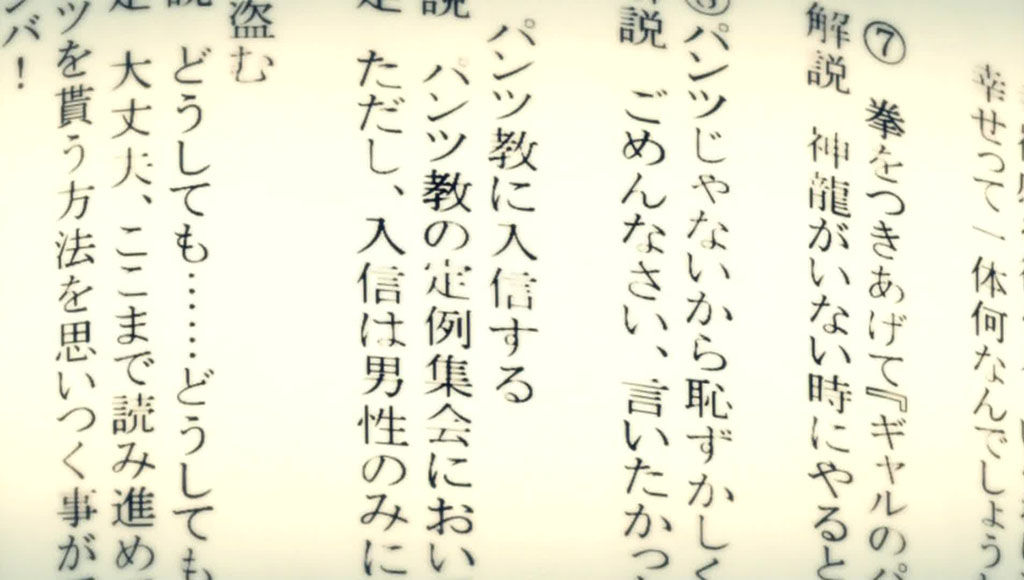 幸せって一体何なんでしょう
⑦ 拳をつきあげて『ギャルのパ
解説 神龍がいない時にやると
パンツじゃないから恥ずかしく
説 ごめんなさい、言いたかっ
パンツ教に入信する
説 パンツ教の定例集会におい
ただし、入信は男性のみに
盗む
どうしても……どうしても
大丈夫、ここまで読み進め
ツを貰う方法を思いつく事が
バ！